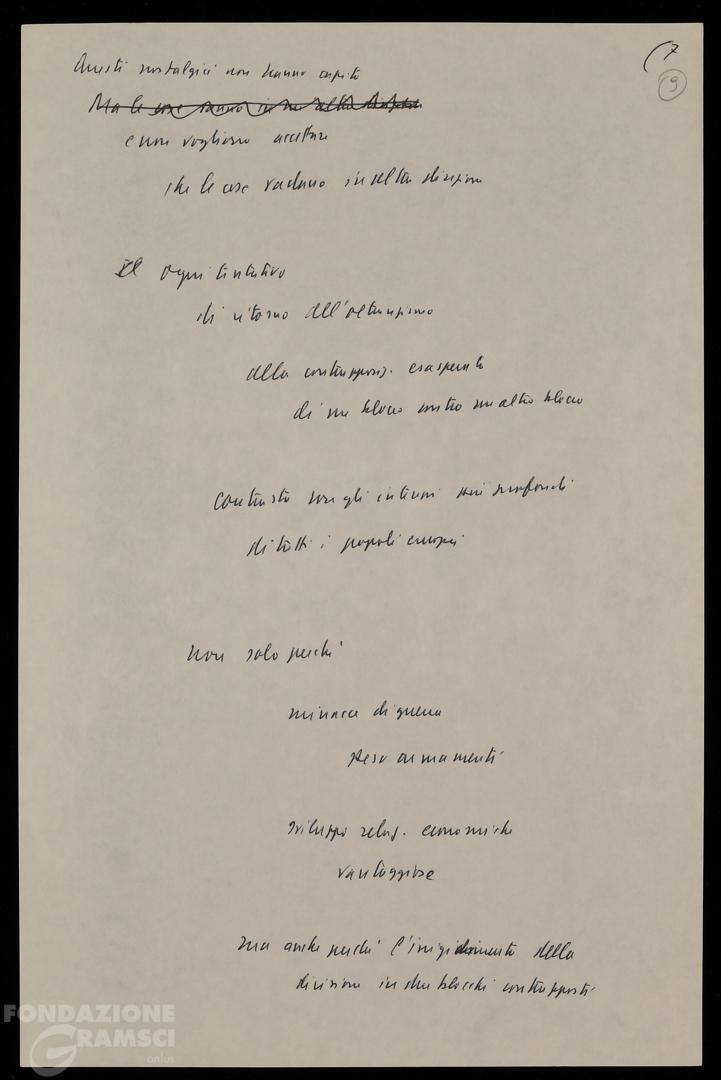 (7
9
Questi nostalgici non hanno capito
Ma le cose vanno in un'altra direzione
e non vogliono accettare
che le cose vadano in altra direzione
E ogni tentativo
di ritorno all'oltranzismo
alla contrapposiz. esasperata
di un blocco contro un altro blocco
contrasta con gli interessi più profondi
di tutti i popoli europei
non solo perché
minacce di guerra
peso armamenti
sviluppo relaz. economiche
vantaggiose
ma anche perché l'irrigidimento della
divisione in due blocchi contrapposti
FONDAZIONE
GRAMSCI
onlus